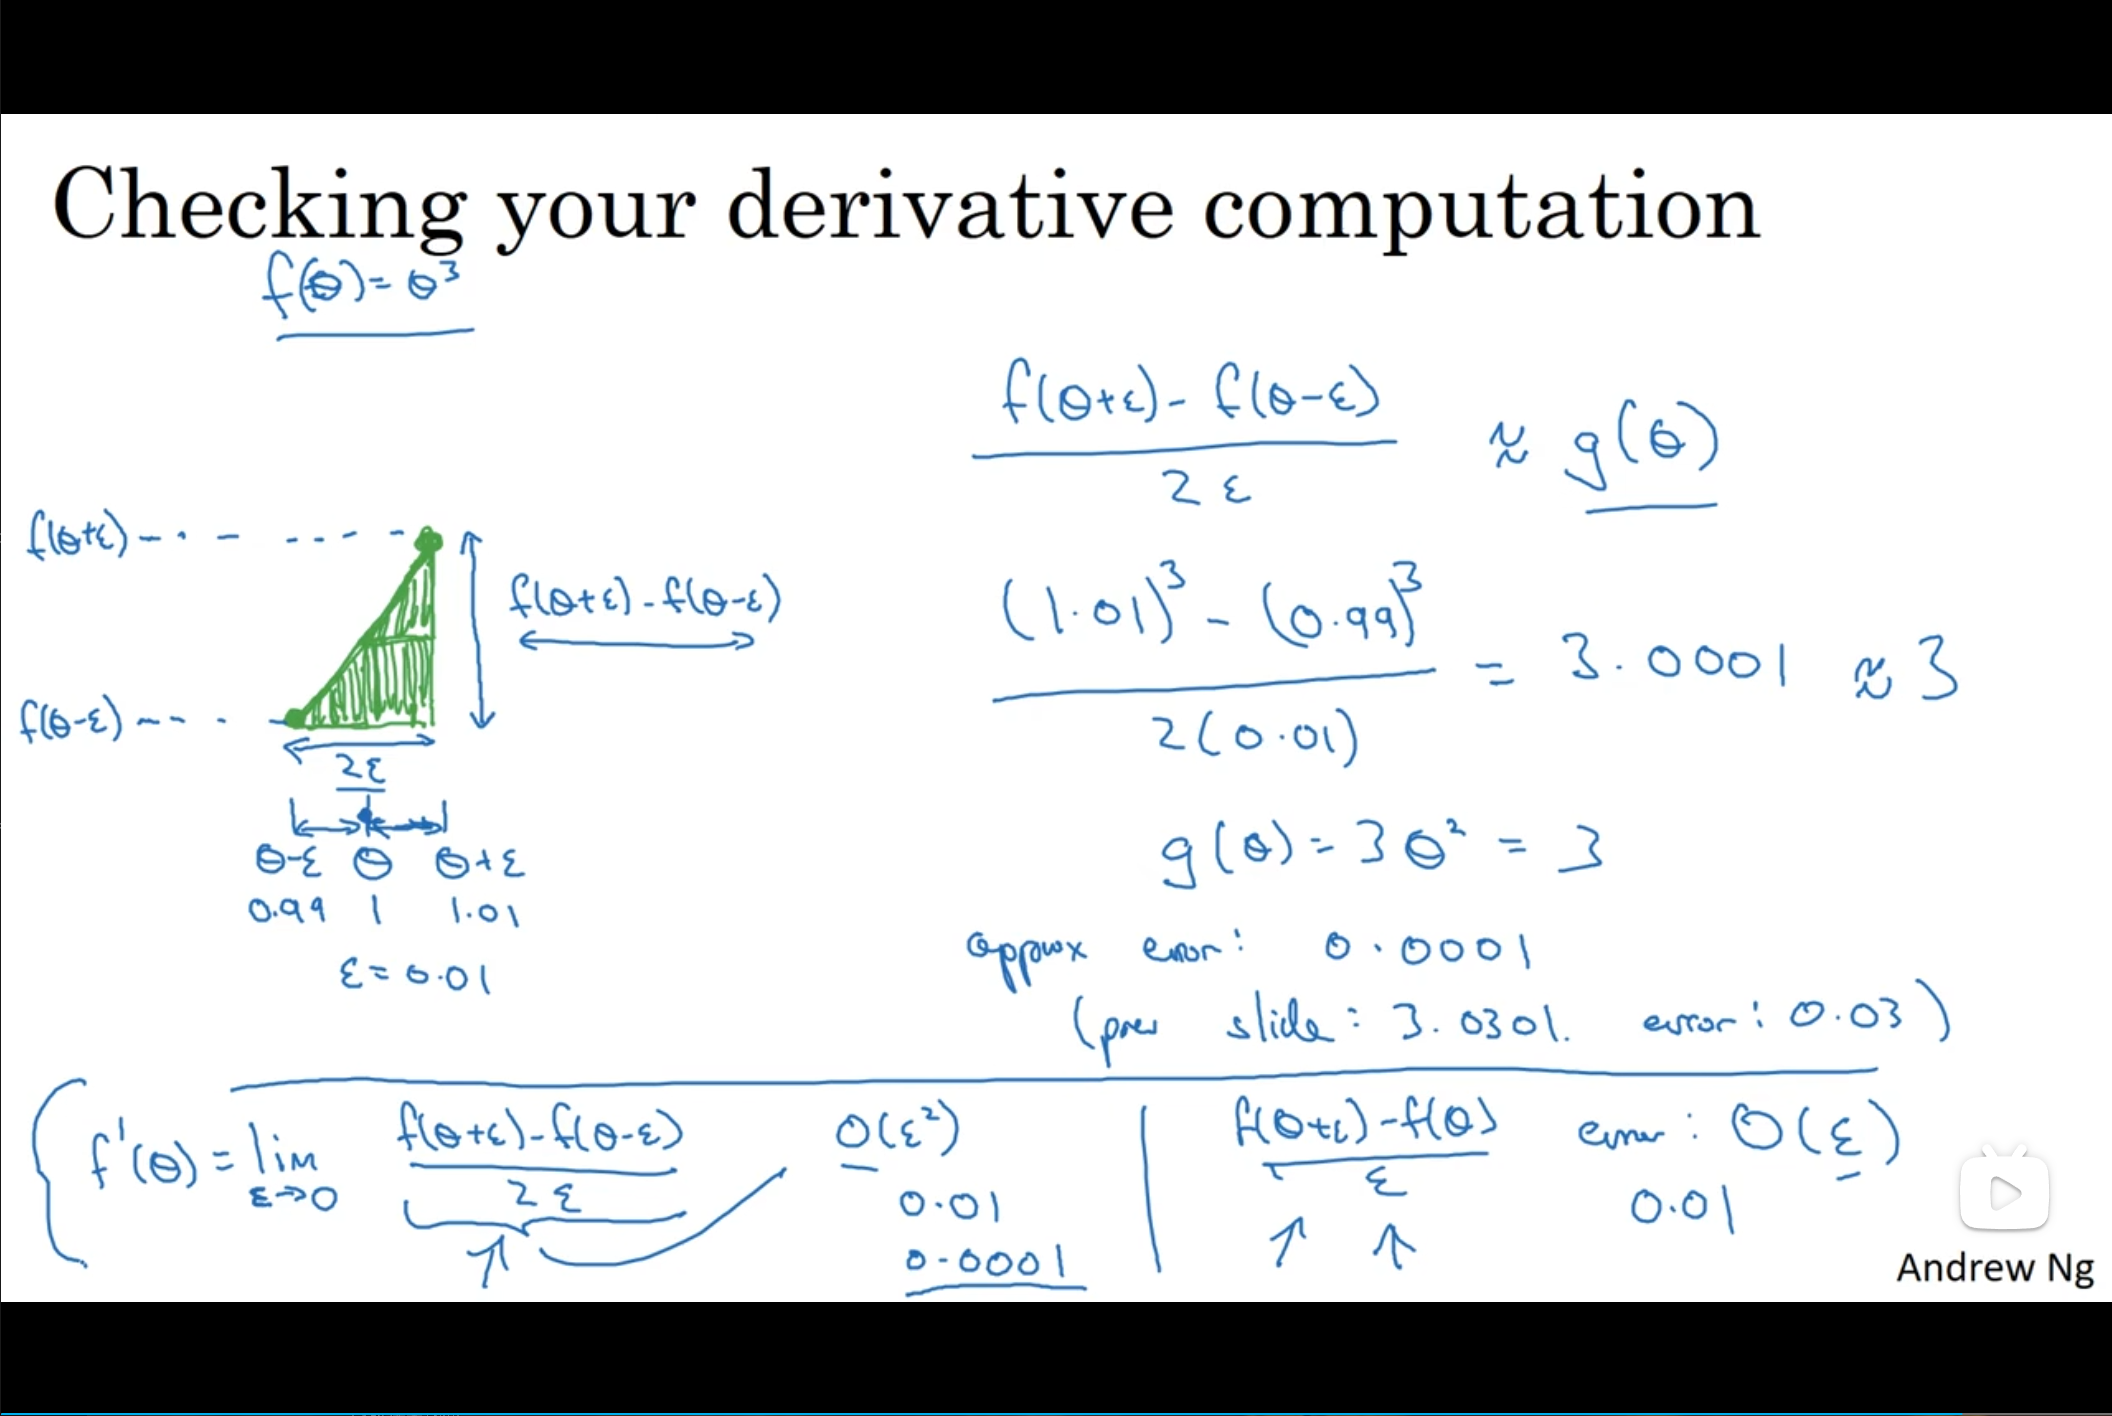 Checking your derivative computation
f(θ) = θ³
f(θ+ε) - f(θ-ε)
2ε
≈ g(θ)
f(θ+ε)
f(θ+ε) - f(θ-ε)
f(θ-ε)
2ε
θ-ε θ θ+ε
0.99 1 1.01
ε = 0.01
(1.01)³ - (0.99)³
2(0.01)
= 3.0001 ≈ 3
g(θ) = 3θ² = 3
approx error: 0.0001
(prev slide: 3.0301. error: 0.03)
f'(θ) = lim
ε→0
f(θ+ε) - f(θ-ε)
2ε
O(ε²)
0.01
0.0001
f(θ+ε) - f(θ)
ε
error: O(ε)
0.01
Andrew Ng